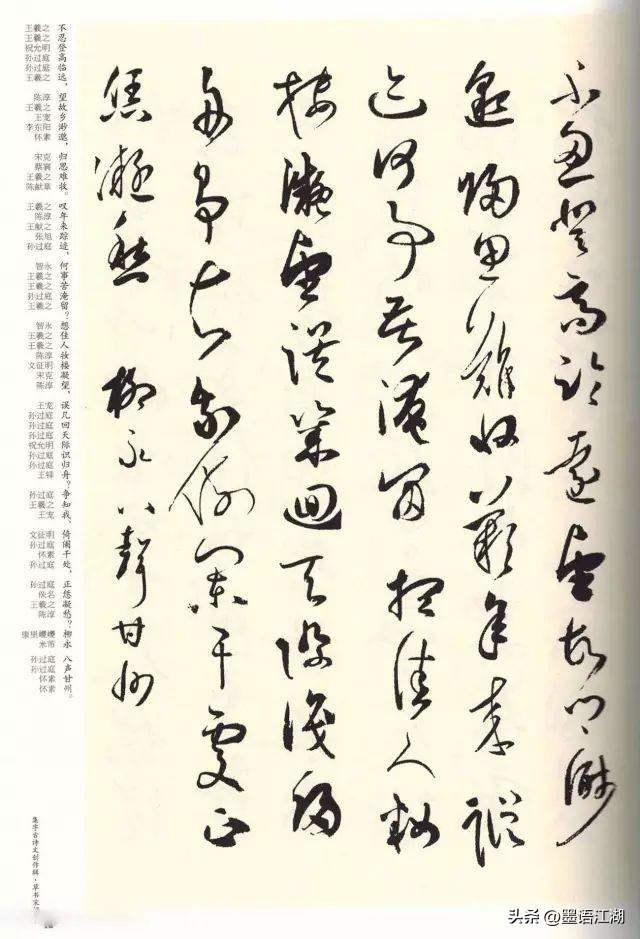 不忍登高臨遠望故鄉渺
邈歸思難收嘆年來蹤
跡何事苦淹留想佳人妝
樓凝望誤幾迴天際識歸
舟爭知我倚闌干處正
恁凝愁 柳永八聲甘州
不忍登高临远，望故乡渺邈，归思难收。叹年来踪迹，何事苦淹留？想佳人妆楼凝望，误几回天际识归舟？争知我，倚阑干处，正恁凝愁？柳永 八声甘州。
王羲之
王羲之
祝允明
孙过庭
孙过庭
王羲之
陈淳
王羲之
王宠
李东阳
怀素
宋克
蔡襄
王羲之
陈献章
王羲之
陈淳
王献之
张旭
孙过庭
智永
王羲之
王羲之
孙过庭
王羲之
智永
王羲之
王羲之
陈淳
文征明
宋克
陈淳
王宠
孙过庭
孙过庭
孙过庭
祝允明
孙过庭
孙过庭
王铎
孙过庭
王羲之
王宠
文征明
孙过庭
怀素
孙过庭
孙过庭
佚名
王羲之
陈淳
康里巎巎
米芾
孙过庭
孙过庭
怀素
怀素
集字古诗文创作辑·草书宋
头条@墨语江湖